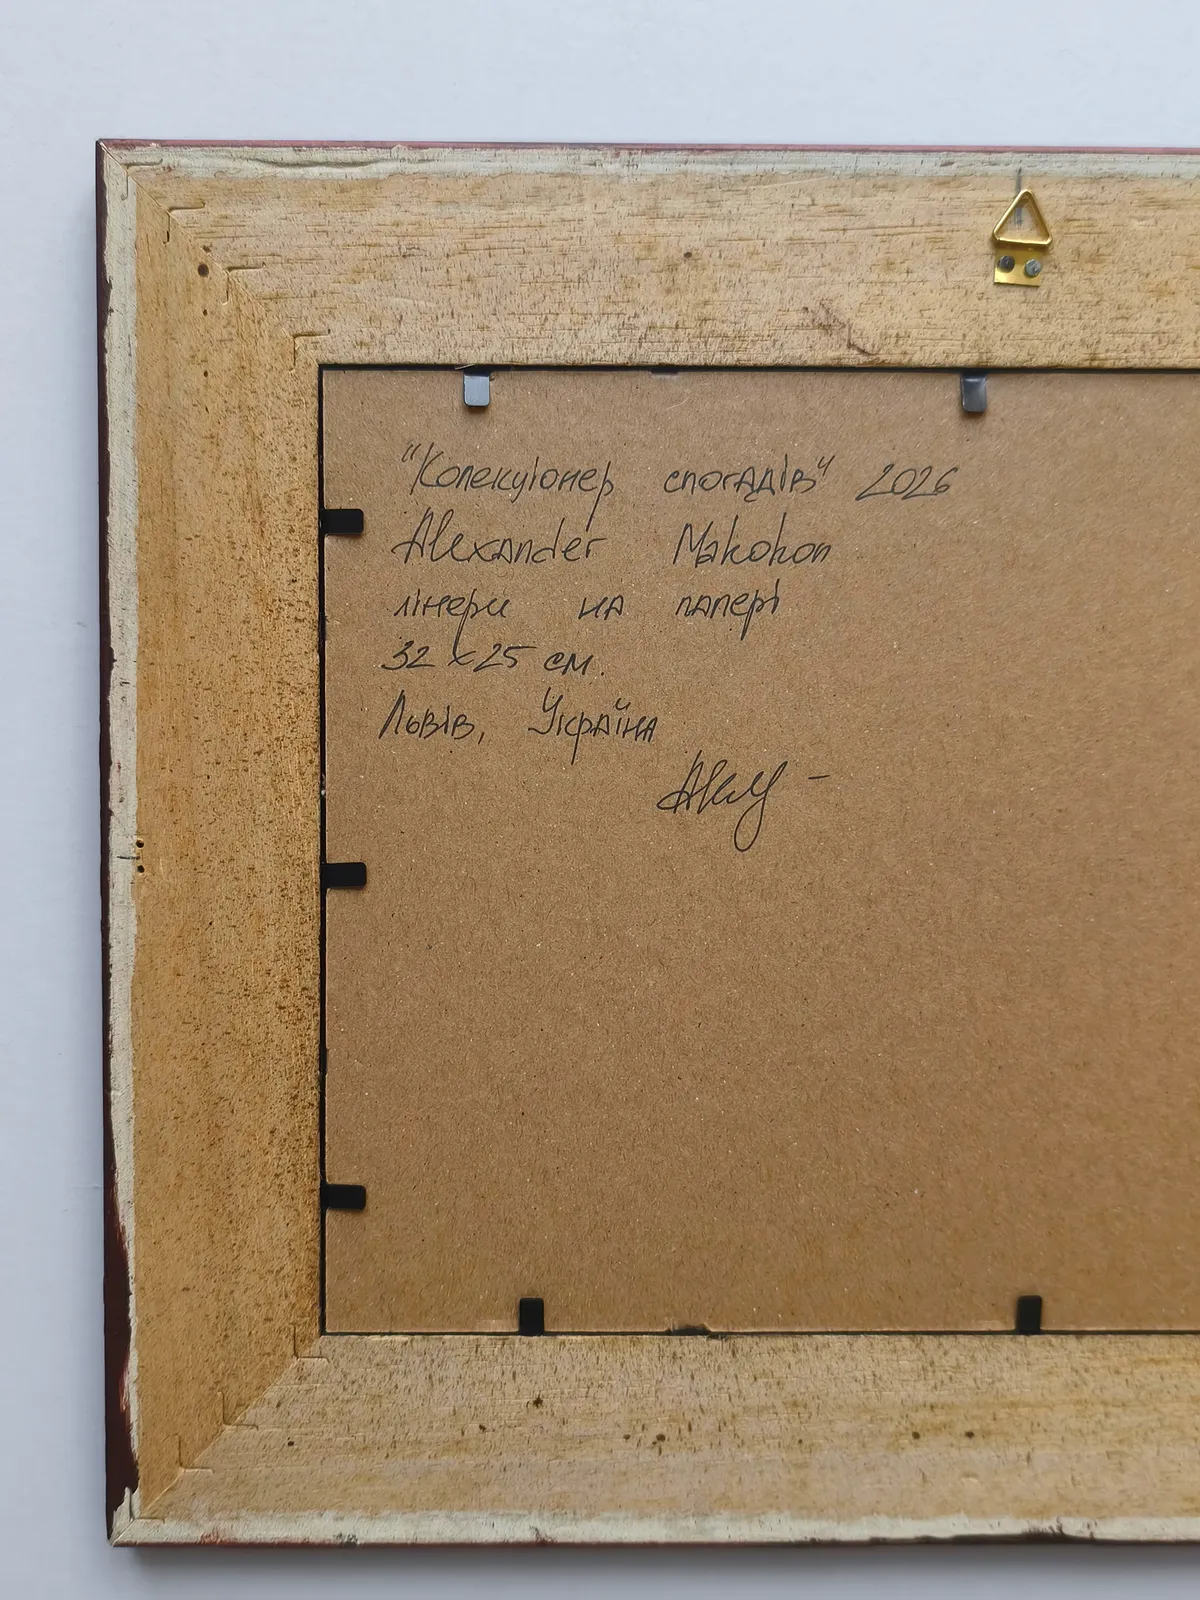 "Колекціонер спогадів" 2026
Alexander Makohon
лінери на папері
32 x 25 см.
Львів, Україна